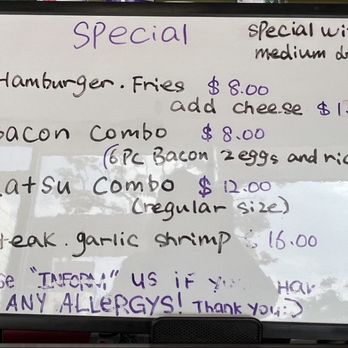 SPECIAL
special wi
medium d
Hamburger. Fries $8.00
add cheese $1.
bacon combo $8.00
(6pc Bacon 2eggs and ric
atsu combo $12.00
(regular size)
teak. garlic shrimp $16.00
se "INFORM" us if you Hav
ANY ALLERGYS! Thank you:)